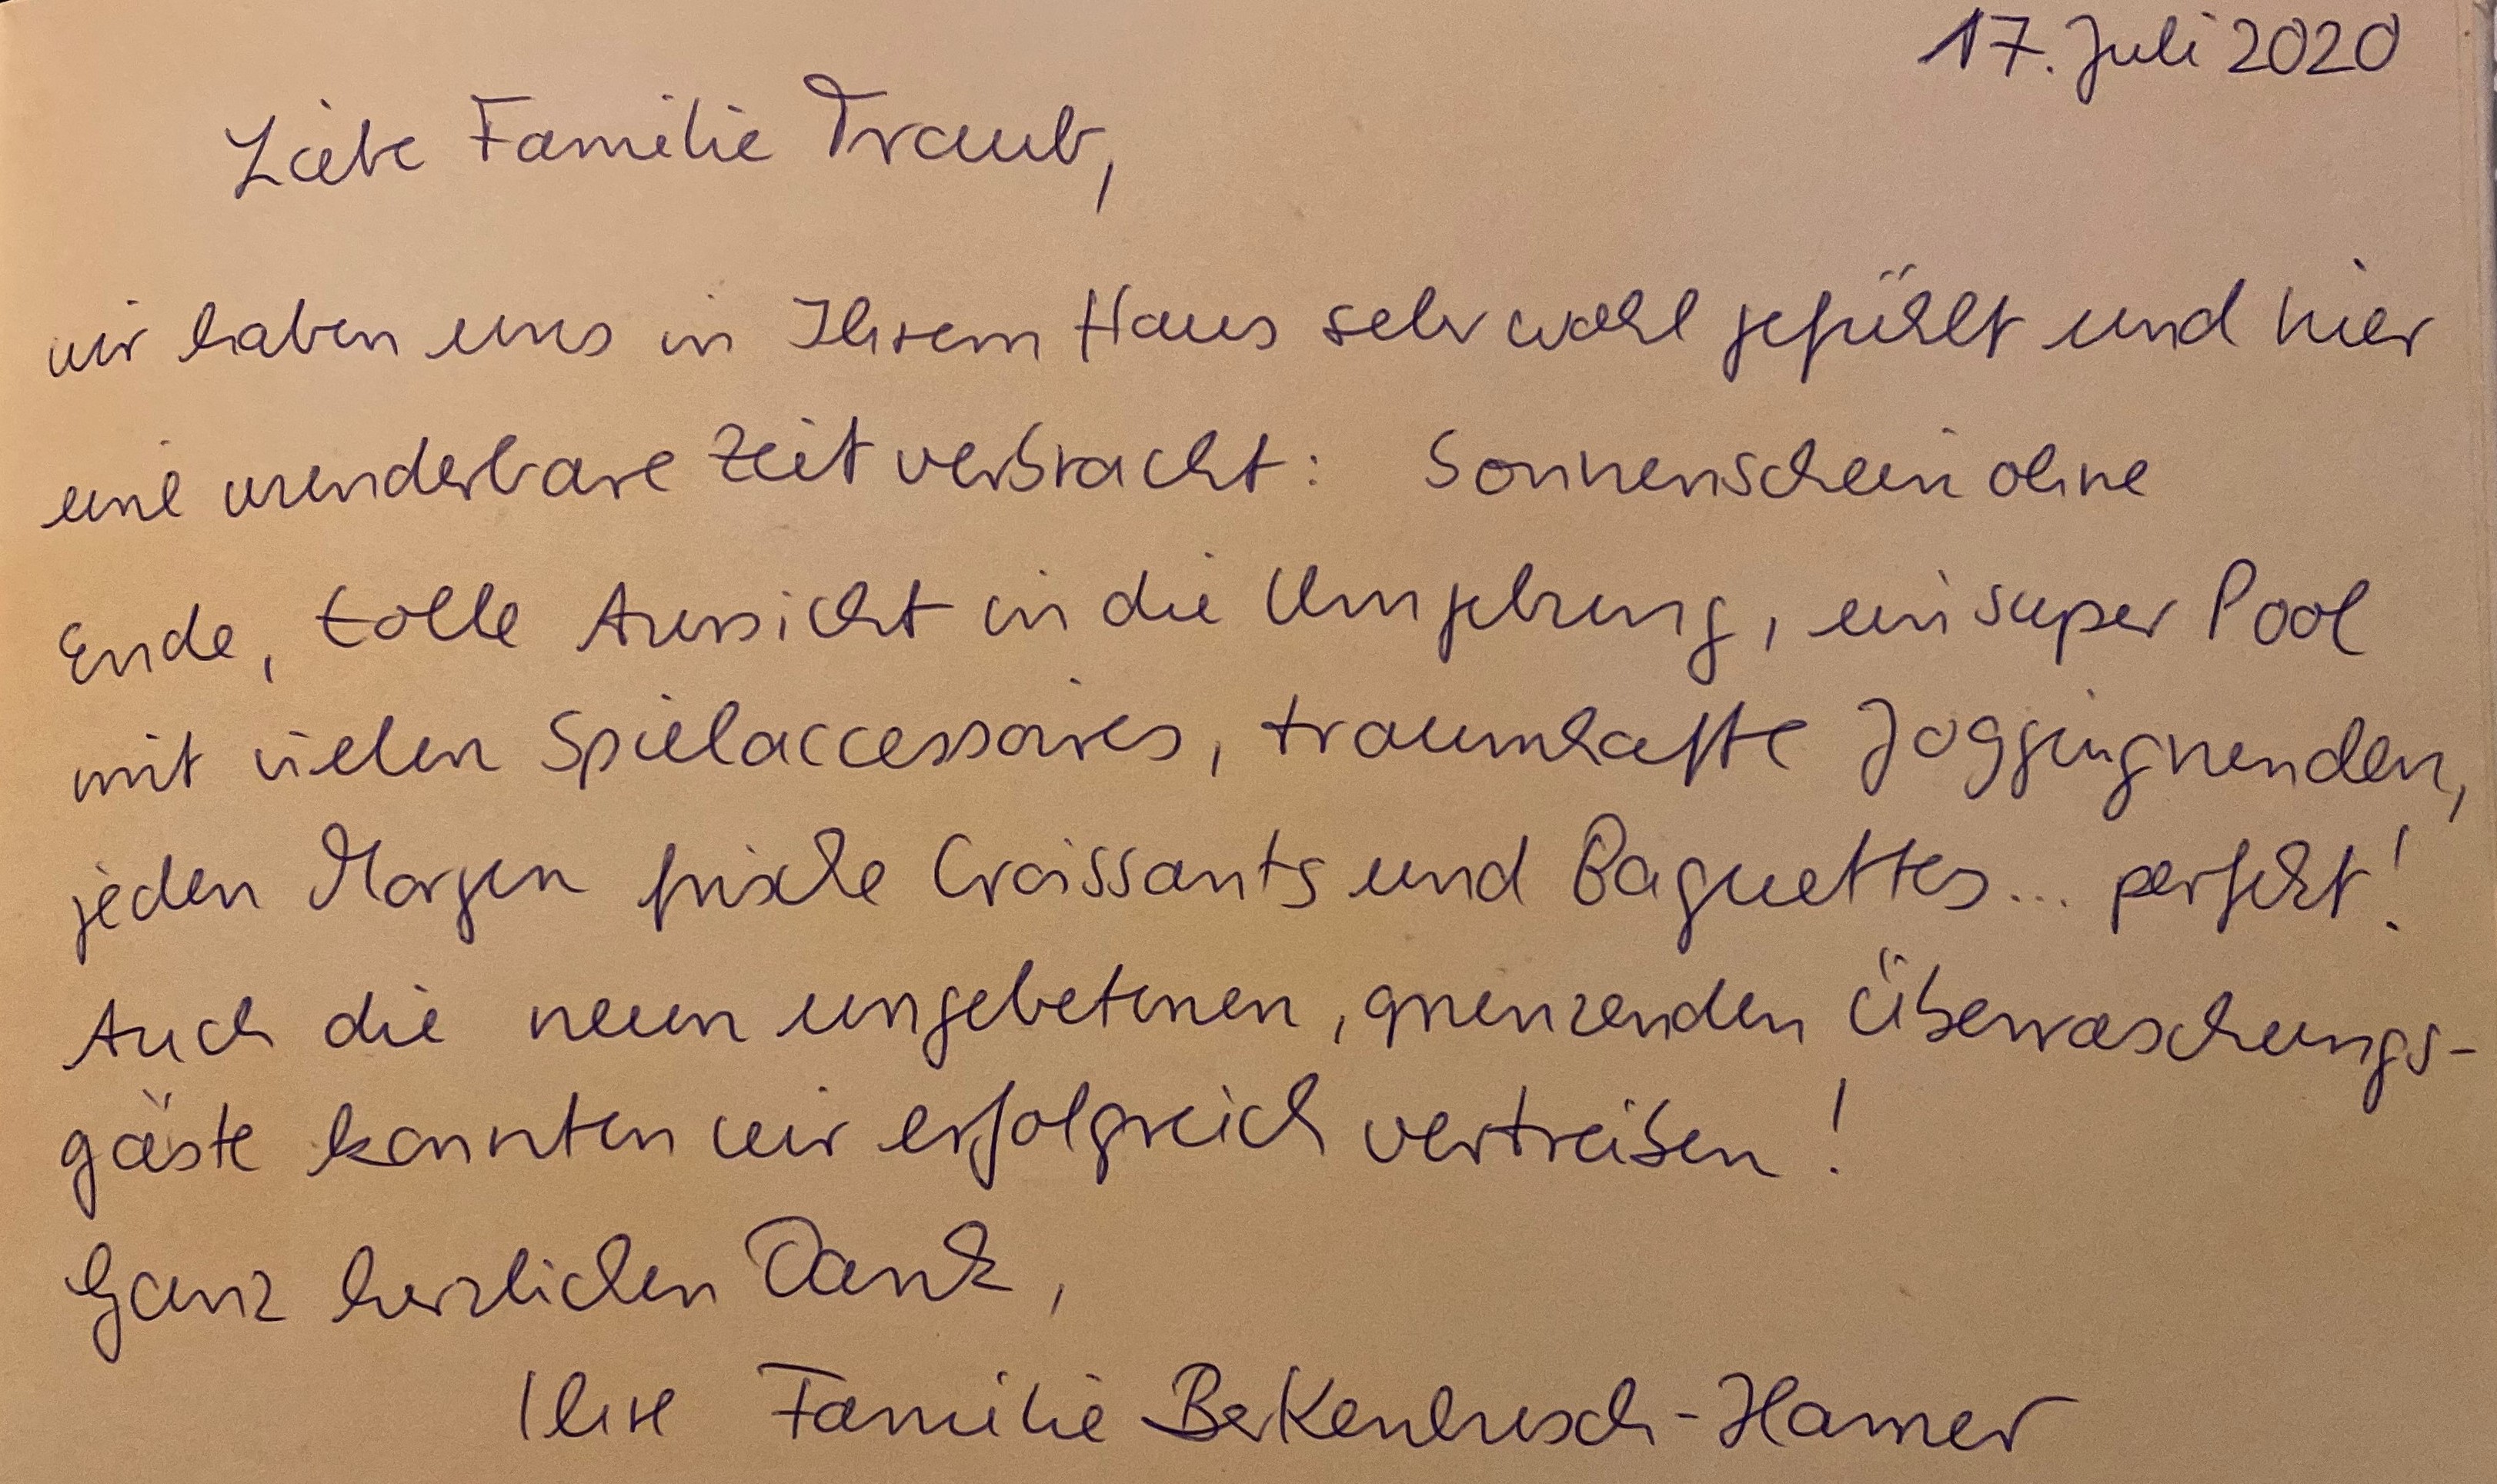 17. Juli 2020
Liebe Familie Traub,
wir haben uns in Ihrem Haus sehr wohl gefühlt und hier
eine wunderbare Zeit verbracht: Sonnenschein ohne
Ende, tolle Aussicht in die Umgebung, ein super Pool
mit vielen Spielaccessoires, traumhafte Joggingrunden,
jeden Morgen frische Croissants und Baguettes... perfekt!
Auch die neun ungebetenen, grunzenden Überraschungs-
gäste konnten wir erfolgreich vertreiben!
Ganz herzlichen Dank,
Ihre Familie Berkenbusch-Hamer